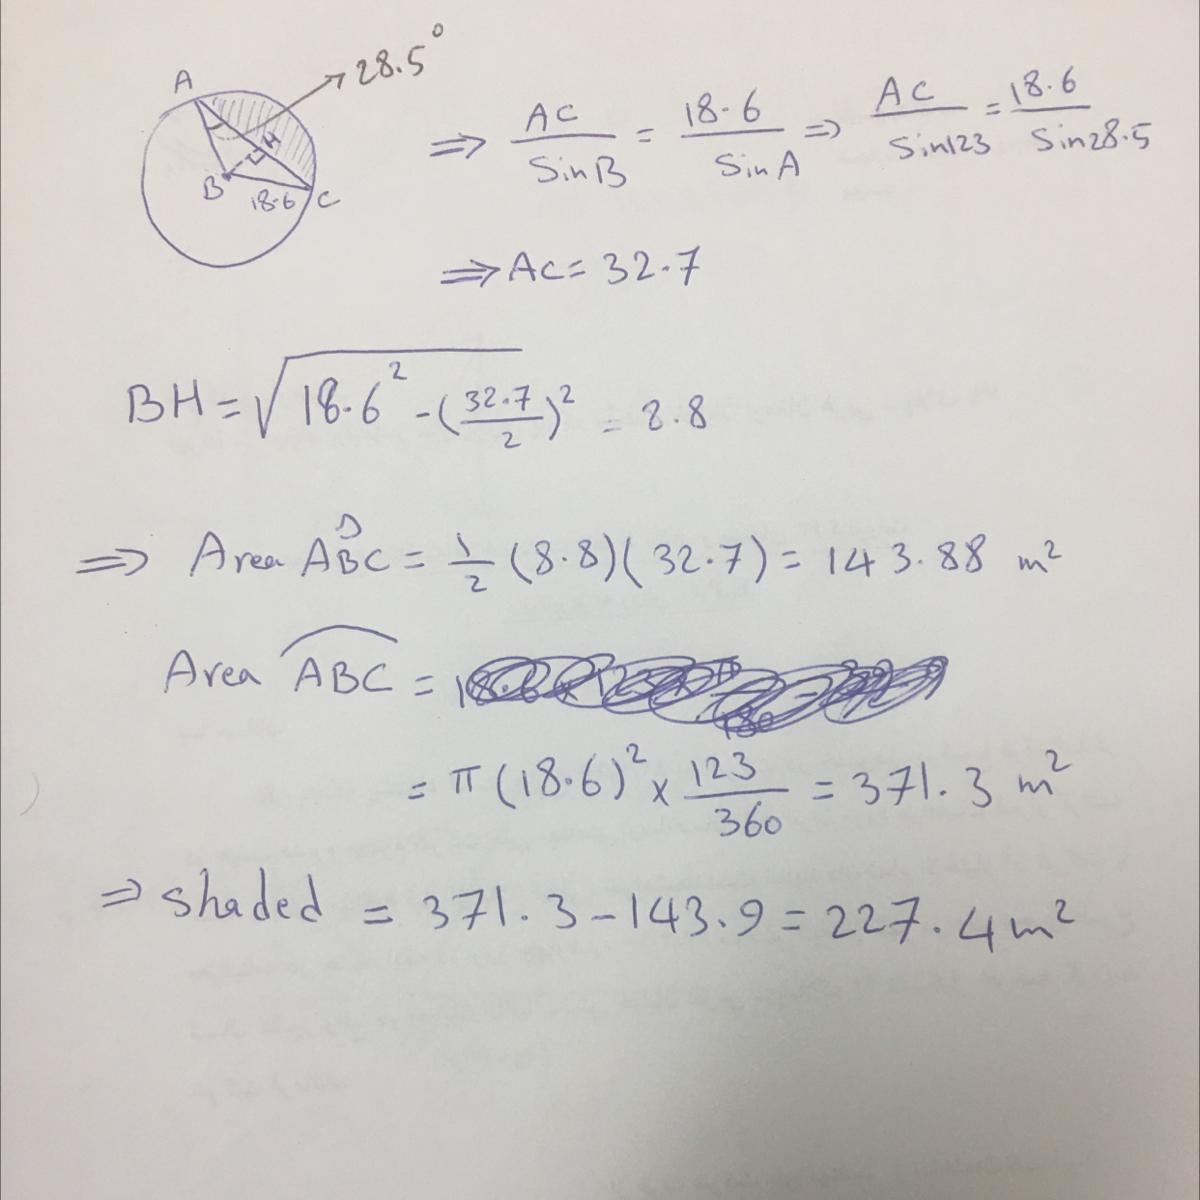 A
28.5°
B
H
18.6
C
⇒ AC/SinB = 18.6/SinA ⇒ AC/Sin123 = 18.6/Sin28.5
⇒ AC = 32.7
BH = √(18.6² - (32.7/2)²) = 8.8
⇒ Area ABC = 1/2 (8.8)(32.7) = 143.88 m²
Area ABC =
= π (18.6)² × 123/360 = 371.3 m²
⇒ shaded = 371.3 - 143.9 = 227.4 m²